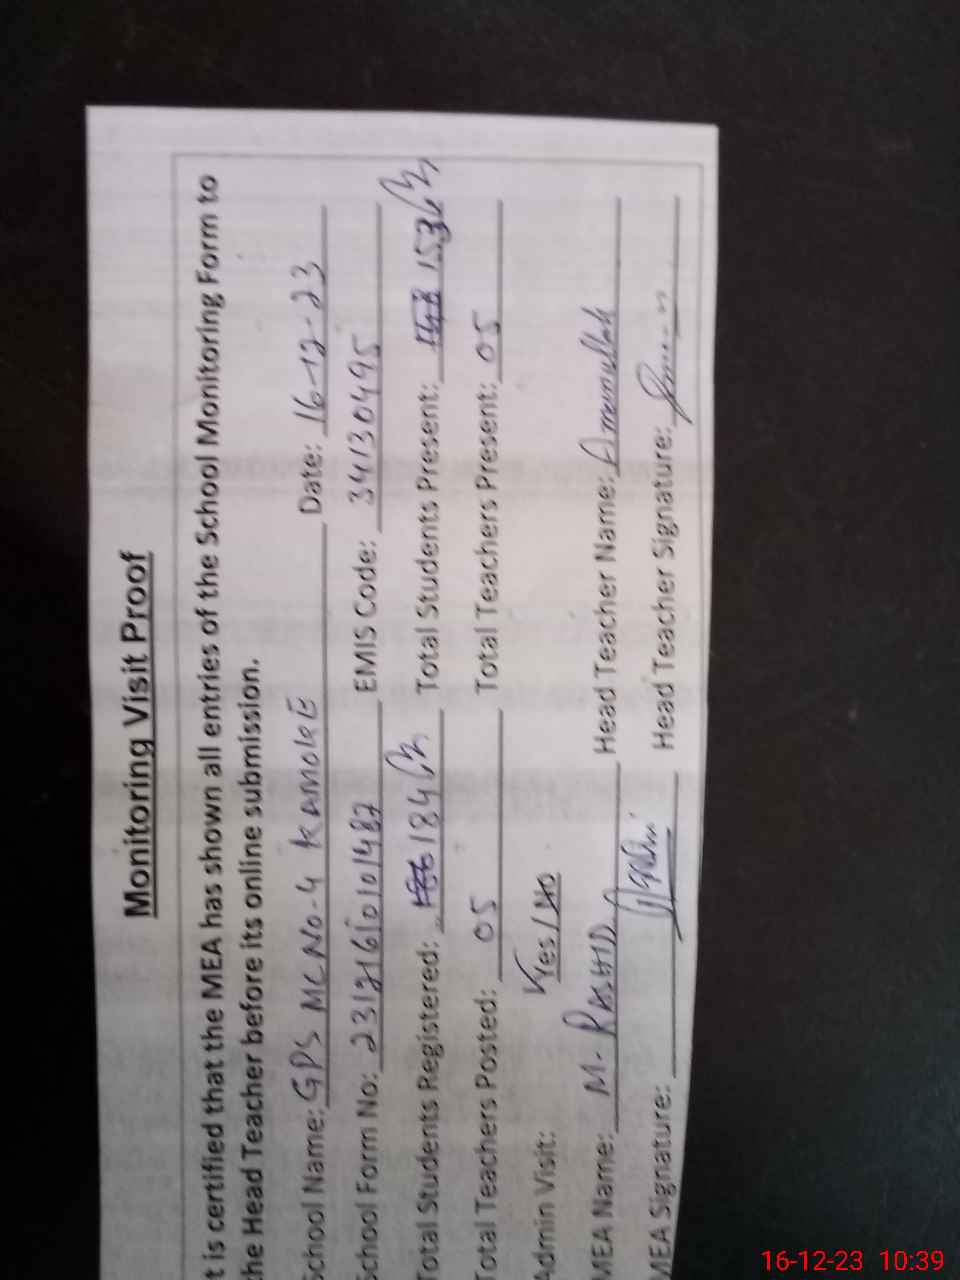 Monitoring Visit Proof
t is certified that the MEA has shown all entries of the School Monitoring Form to
the Head Teacher before its online submission.
School Name: GPS MC NO-4 KAMOKE Date: 16-12-23
School Form No: 23121610101487 EMIS Code: 34130495
Total Students Registered: 184 Total Students Present: 153
Total Teachers Posted: 05 Total Teachers Present: 05
Admin Visit: Yes/No
MEA Name: M. RASHID Head Teacher Name: Amanullah
MEA Signature: Head Teacher Signature:
16-12-23 10:39